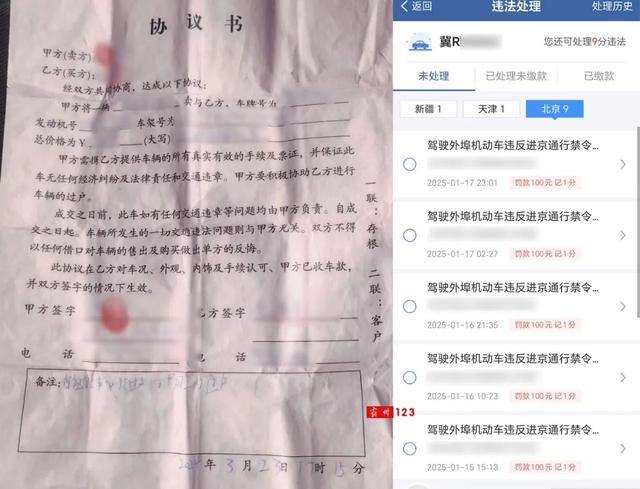 协议书
甲方(卖方):
乙方(买方):
经双方共同协商，达成以下协议:
甲方将一辆 卖与乙方、车牌号为
发动机号 车架号为
总价格为￥ (大写)
甲方需提乙方提供车辆的所有真实有效的手续及票证，并保证此
车无任何经济纠纷及法律责任和交通违章。甲方要积极协助乙方进行
车辆的过户。
成交之日前，此车如有任何交通违章等问题均由甲方负责。自成
交之日起。车辆所发生的一切交通违法问题则与甲方无关。双方不得
以任何借口对车辆的售出及购买做出单方的反悔。
此协议在乙方对车况、外观、内饰及手续认可、甲方已收车款，
并双方签字的情况下生效。
甲方签字 乙方签字
电 话 电 话
备注:
年 3 月 23日 17时 15分
一联：存根 二联：客户
霸州123
返回 违法处理 处理历史
冀R
您还可处理9分违法
未处理 已处理未缴款 已缴款
新疆 1 天津 1 北京 9
驾驶外埠机动车违反进京通行禁令...
2025-01-17 23:01 罚款100元 记1分
驾驶外埠机动车违反进京通行禁令...
2025-01-17 02:27 罚款100元 记1分
驾驶外埠机动车违反进京通行禁令...
2025-01-16 21:35 罚款100元 记1分
驾驶外埠机动车违反进京通行禁令...
2025-01-16 10:23 罚款100元 记1分
驾驶外埠机动车违反进京通行禁令...
2025-01-15 15:13 罚款100元 记1分